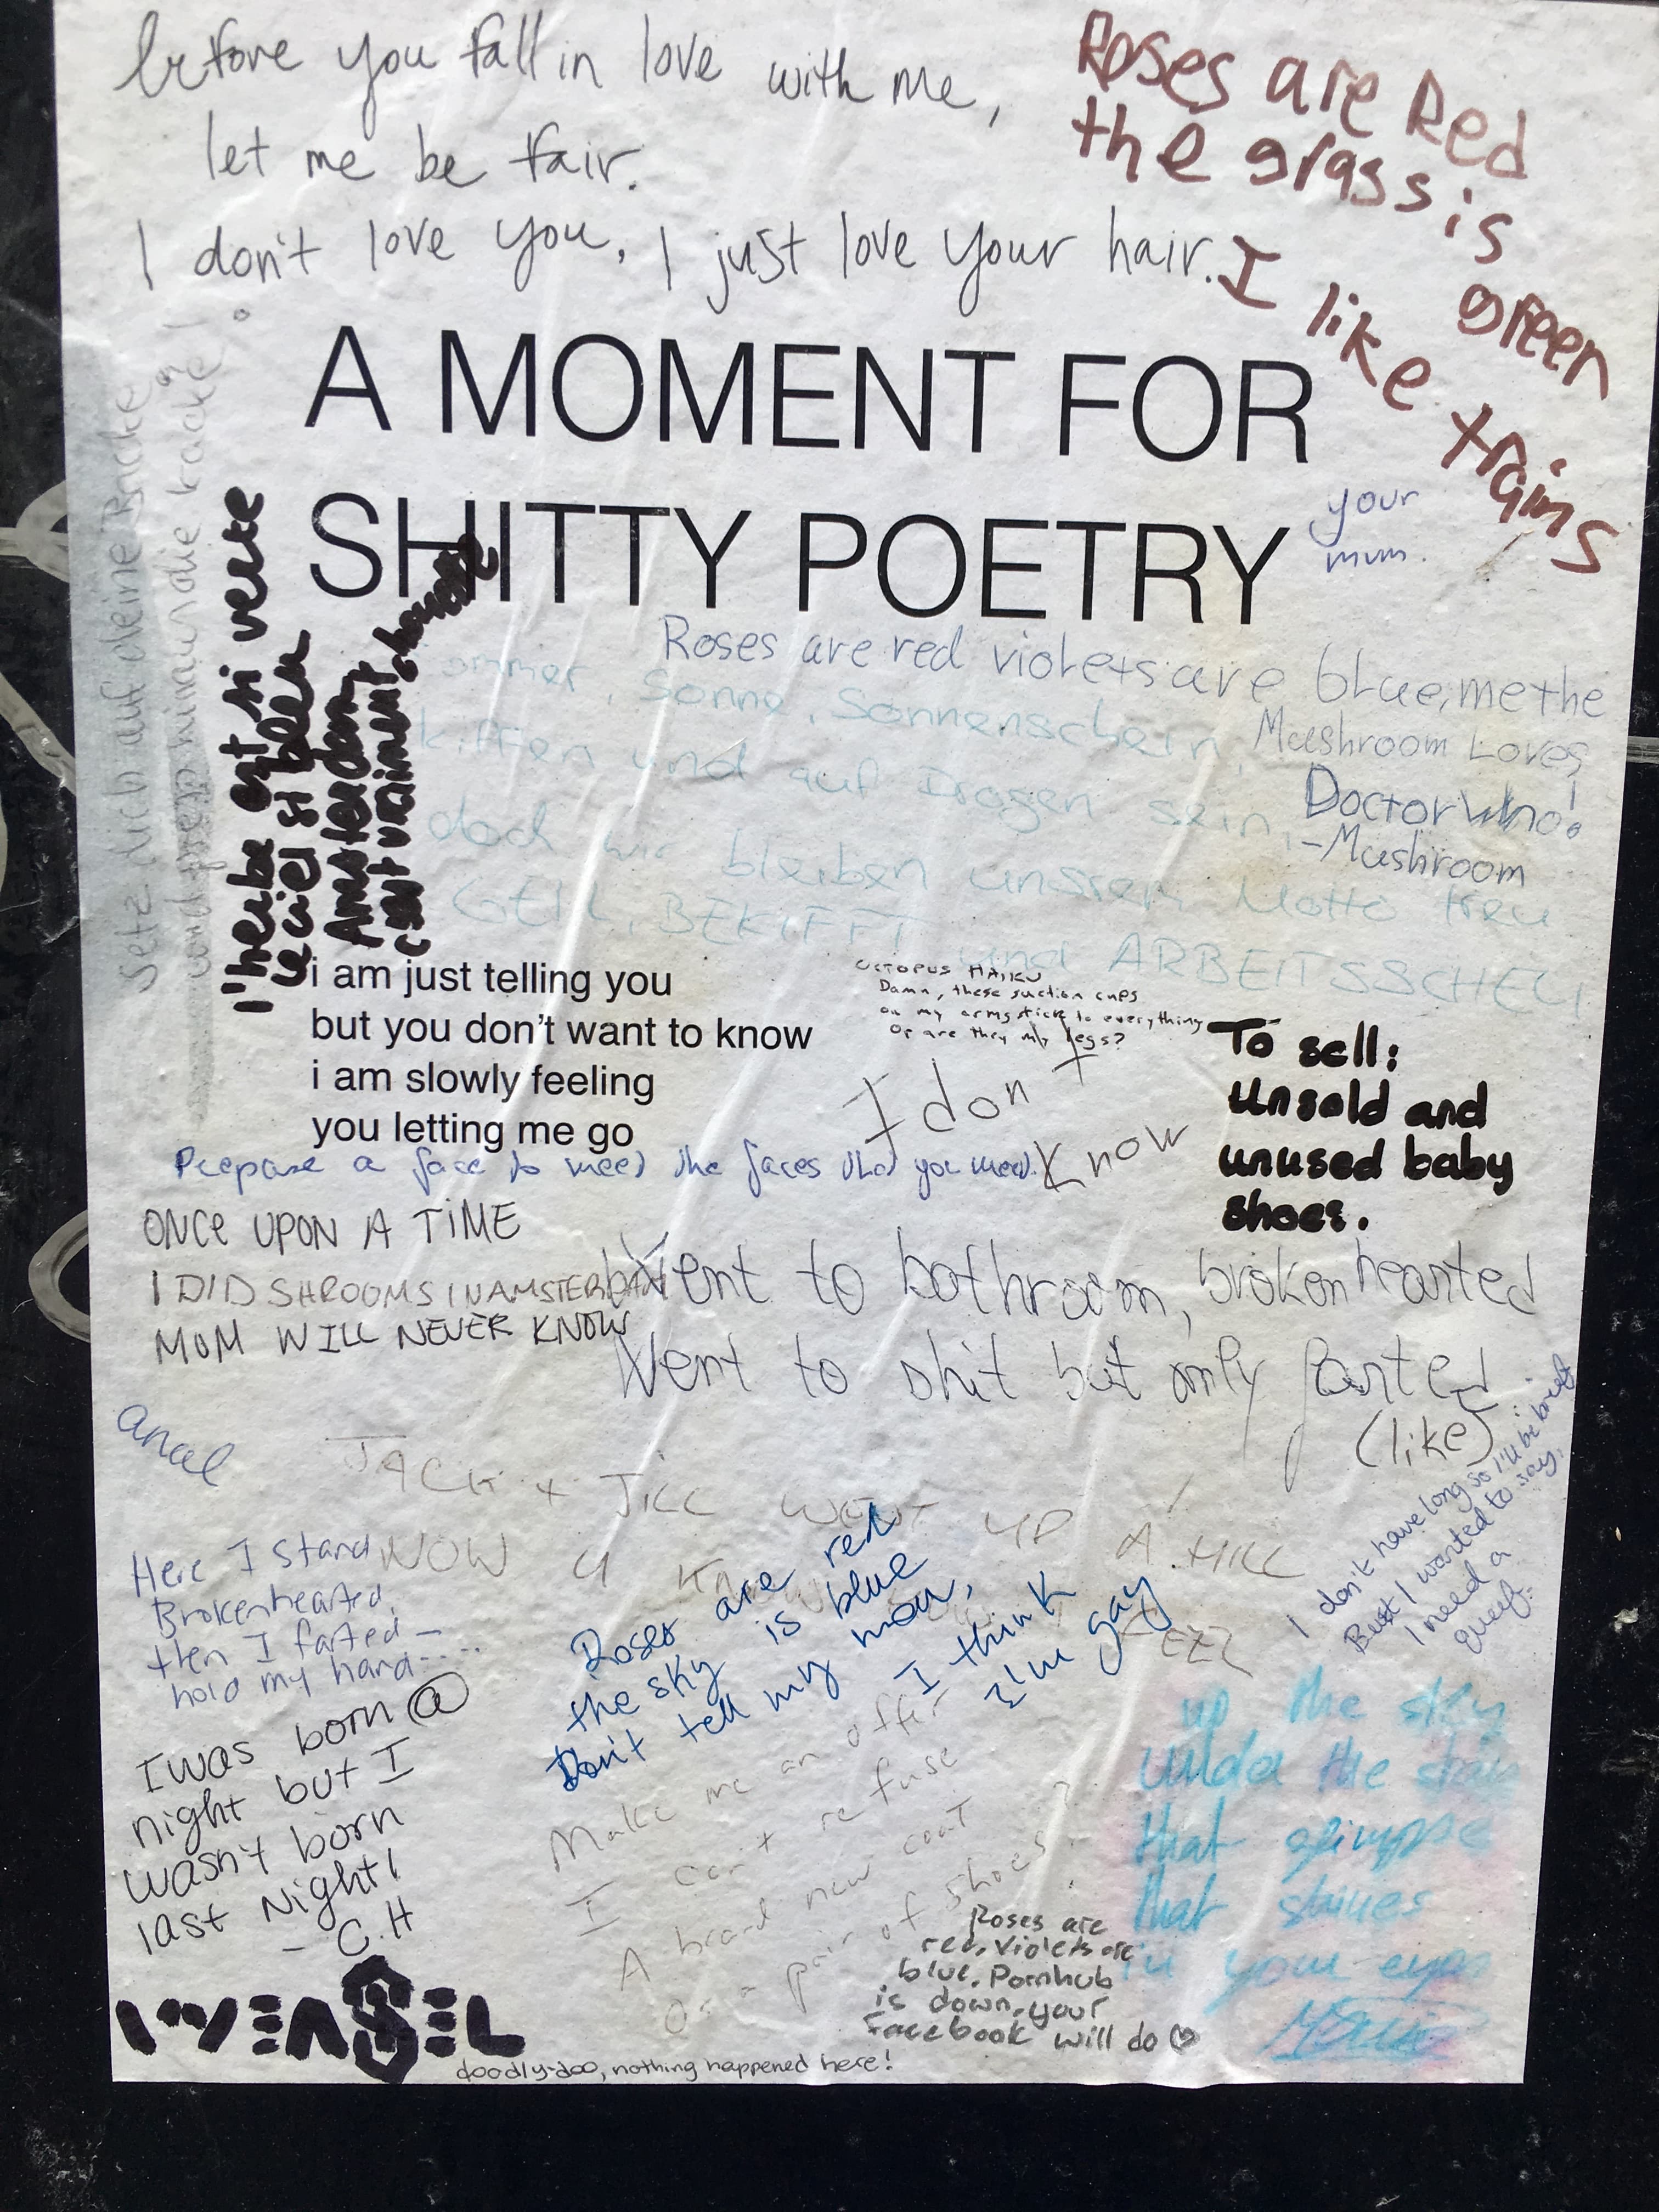 before you fall in love with me,
let me be fair.
I don't love you. I just love your hair.
Roses are Red
the grass is green
I like trains
A MOMENT FOR
SHITTY POETRY
your
mum.
Setz dich auf deine
die kacke!
l'herbe est si verte
le ciel si bleu
Amsterdam
c'est vraiment
Roses are red violets are blue, me the
Mushroom Loves
Doctor Who!
-Mushroom
Sonne, Sonnenschein,
kiffen und auf Drogen sein,
doch wir bleiben unsrem Motto treu
GEIL, BEKIFFT und ARBEITSSCHEU
i am just telling you
but you don't want to know
i am slowly feeling
you letting me go
OCTOPUS HAIKU
Damn, these suction cups
on my arms stick to everything
Or are they my legs?
I don't
know
To sell:
Unsold and
unused baby
shoes.
Prepare a face to meet the faces that you meet.
ONCE UPON A TIME
I DID SHROOMS IN AMSTERDAM
MOM WILL NEVER KNOW
Went to bathroom, brokenhearted
Went to shit but only farted
(like)
anal
JACK + JILL WENT UP A HILL
NOW U KNOW
I don't have long so I'll be brief
But I wanted to say,
I need a
queef.
Here I stand
Brokenhearted,
then I farted-
hold my hand....
Roses are red
the sky is blue
Don't tell my mom,
I think
I'm gay
I was born @
night but I
wasn't born
last Night!
- C.H
Make me an offer
I can't refuse
A brand new coat
Or a pair of shoes?
up the sky
under the
that glimpse
that shines
in your eyes
Roses are
red, Violets are
blue. Pornhub
is down, your
Facebook will do ♡
WEASEL
doodly-doo, nothing happened here!